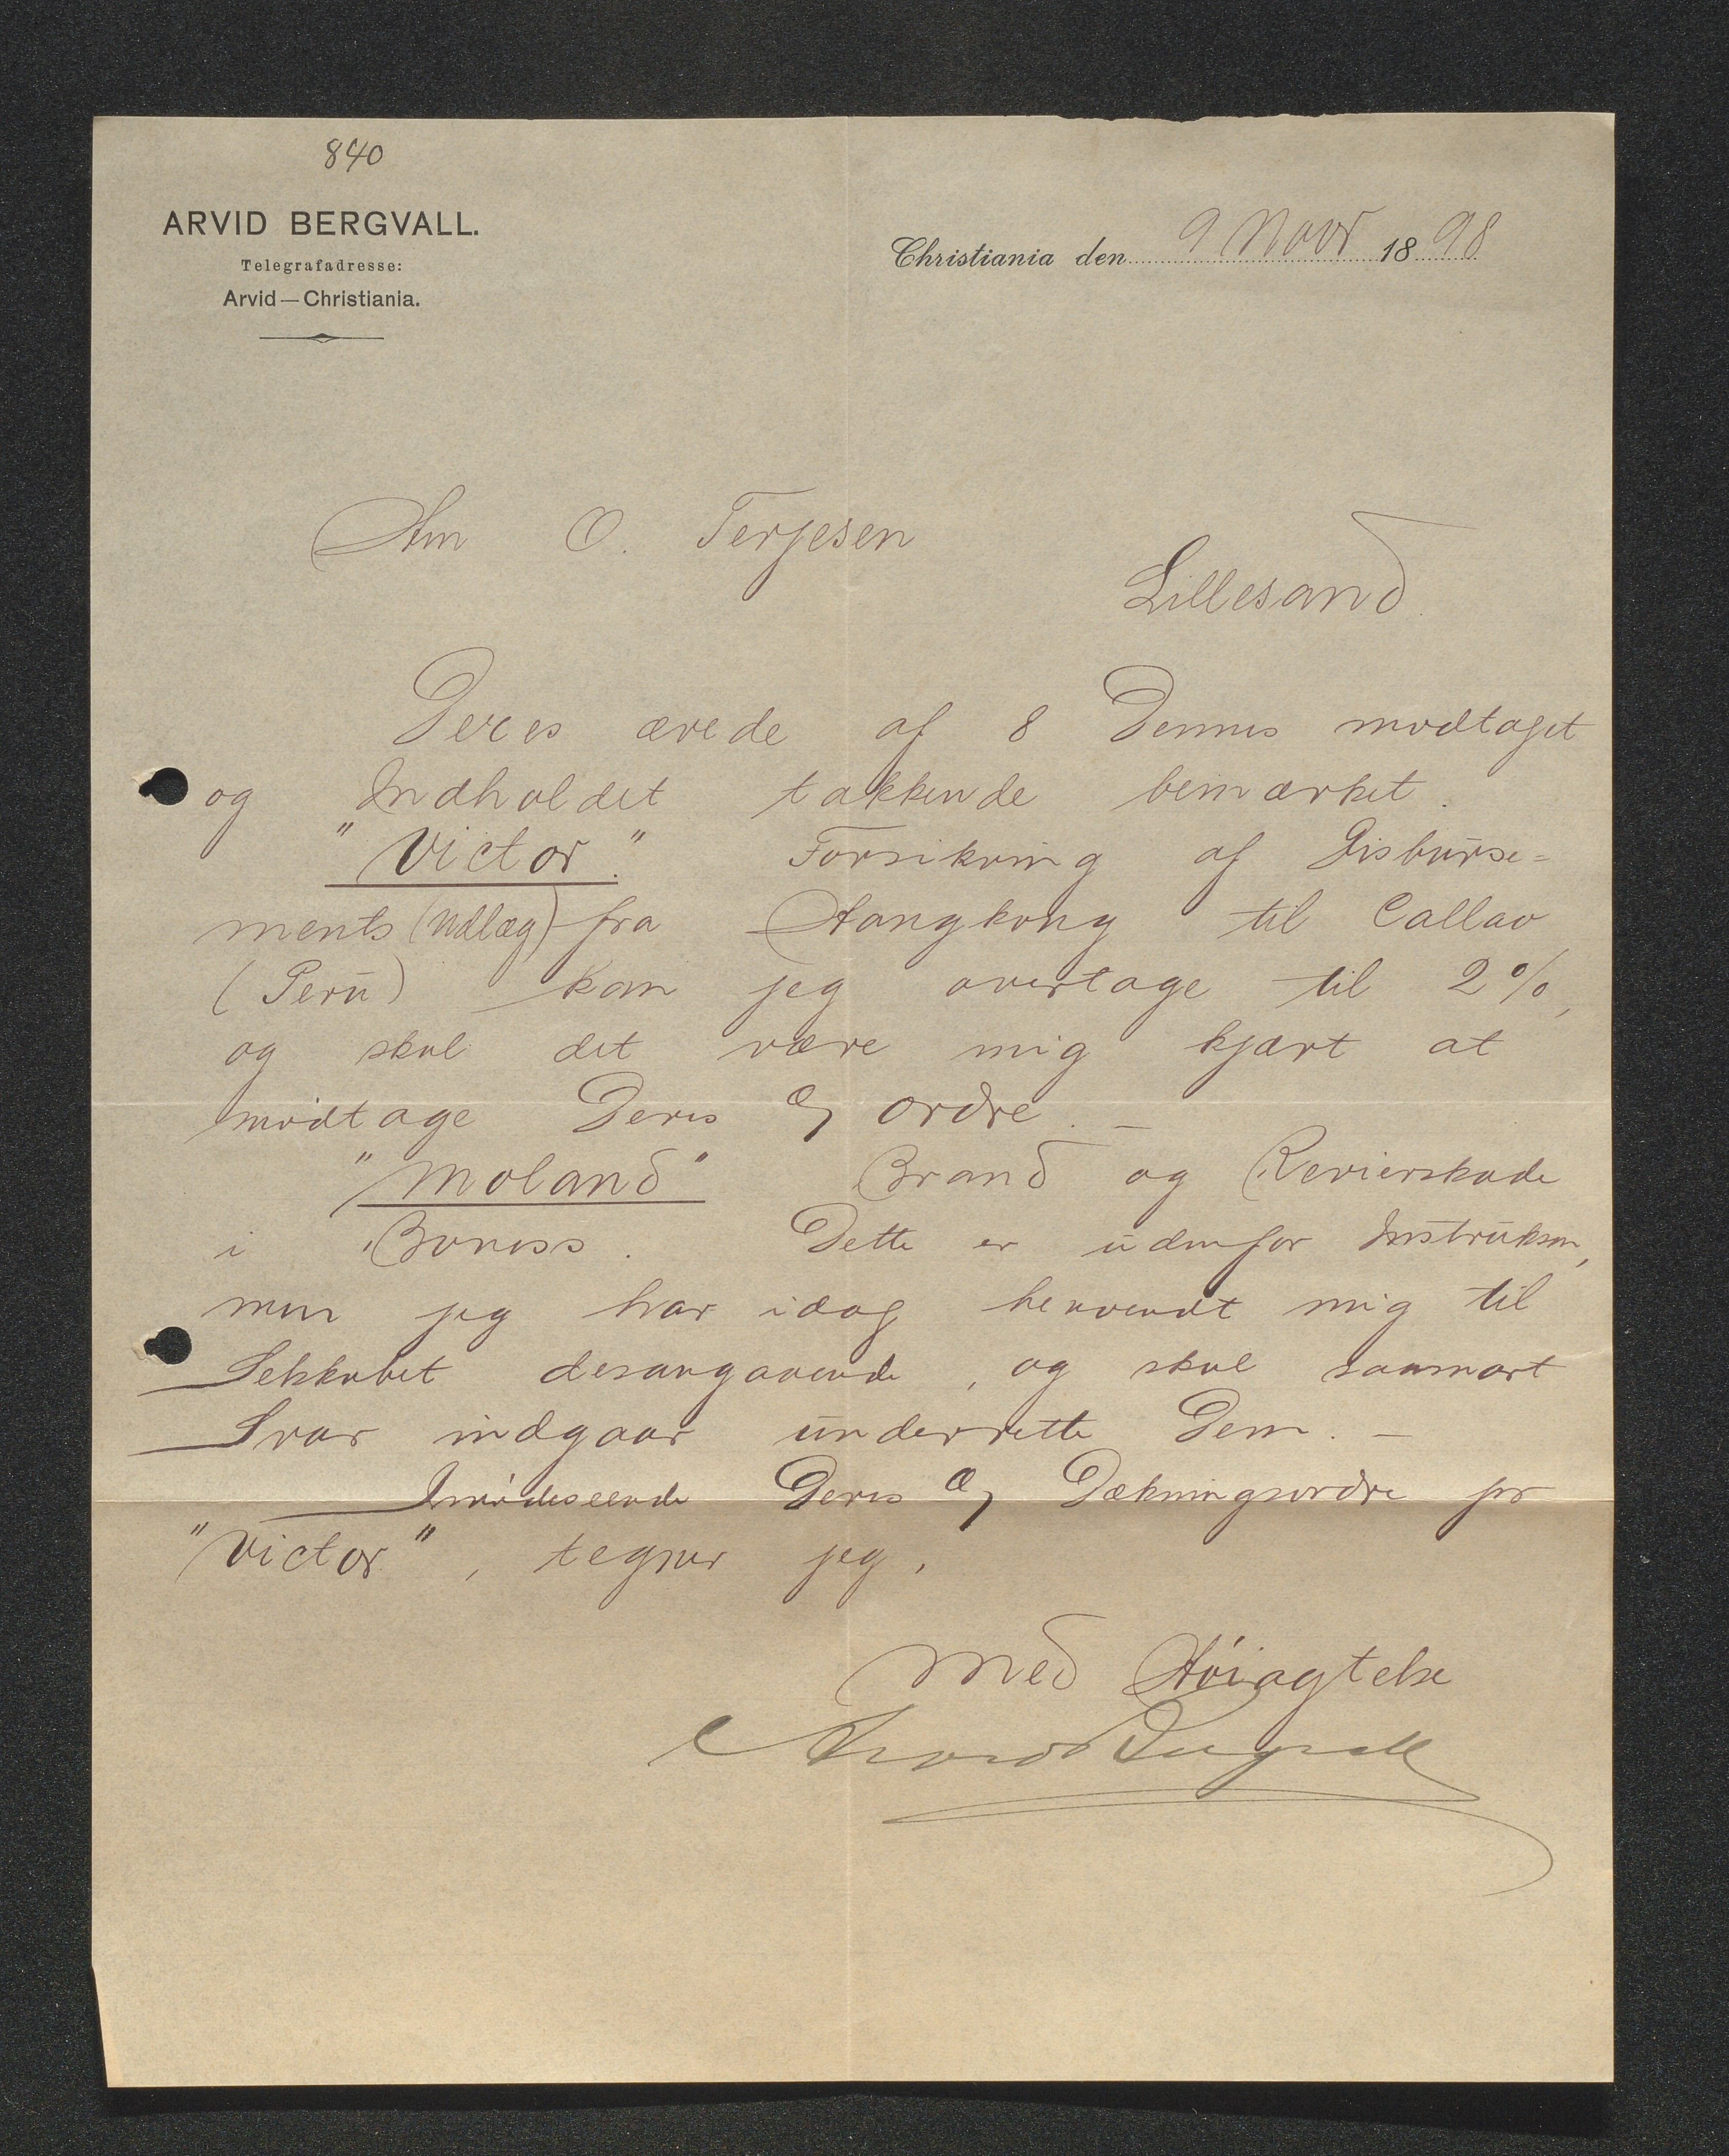 840
ARVID BERGVALL.
Telegrafadresse:
Arvid — Christiania.
Christiania den 9 Novr 1898
Hrr O. Terjesen
Lillesand.
Deres ærede af 8 Dennes modtaget
og Indholdet takkende bemærket.
"Victor." Forsikring af Disburse=
ments (Udlæg) fra Hongkong til Callao
(Peru) kan jeg overtage til 2%,
og skal det være mig kjært at
modtage Deres Æ ordre. —
"Moland" Brand og Revierskade
i Boness. Dette er udenfor Instruksen,
men jeg har idag henvendt mig til
Selskabet desangaaende, og skal saasnart
Svar indgaar underrette Dem. —
Imødeseende Deres Æ Dækningsordre pr
"Victor", tegner jeg,
med Høiagtelse
Arvid Bergvall